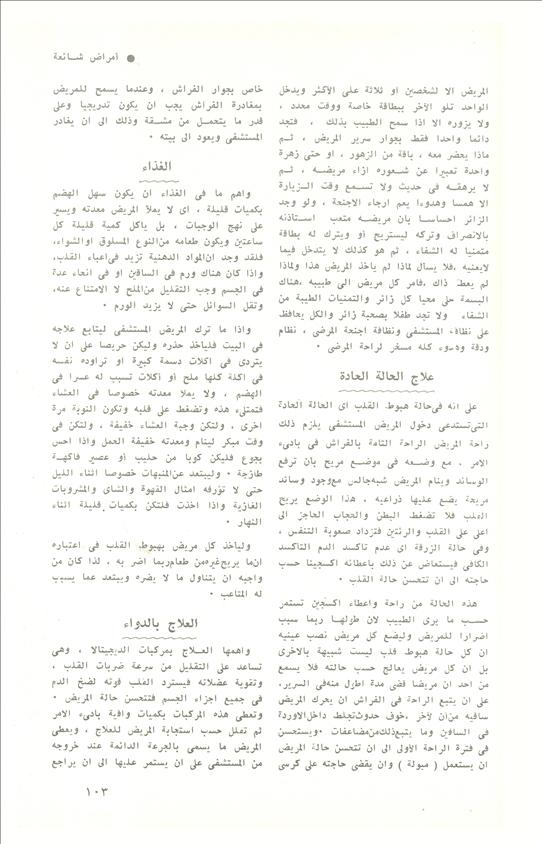 ● أمراض شائعة
المريض الا لشخصين او ثلاثة على الأكثر ويدخل
الواحد تلو الآخر ببطاقة خاصة ووقت محدد ،
ولا يزوره الا اذا سمح الطبيب بذلك ، فتجد
دائما واحدا فقط بجوار سرير المريض ، ثم
ماذا يحضر معه ، باقة من الزهور ، او حتى زهرة
واحدة تعبيرا عن شعوره ازاء مريضه ، ثم
لا يرهقه فى حديث ولا تسمع وقت الزيارة
الا همسا وهدوءا يعم ارجاء الاجنحة ، ولو وجد
الزائر احساسا بان مريضه متعب استأذنه
بالانصراف وتركه ليستريح أو ويترك له بطاقة
متمنيا له الشفاء ، ثم هو كذلك لا يتدخل فيما
لايعنيه ،فلا يسأل لماذا لم يأخذ المريض هذا ولماذا
لم يعط ذاك ،فامر كل مريض الى طبيبه ،هناك
البسمة على محيا كل زائر والتمنيات الطيبة من
الشفاء ولا تجد طفلا بصحبة زائر والكل يحافظ
على نظافة المستشفى ونظافة اجنحة المرضى ، نظام
ودقة وهدوء كله مسخر لراحة المرضى ·
علاج الحالة الحادة
على انه فى حالة هبوط القلب اى الحالة الحادة
التى تستدعى دخول المريض المستشفى يلزم ذلك
راحة المريض الراحة التامة بالفراش فى بادىء
الامر . مع وضعه فى موضع مريح بان ترفع
الوسائد وينام المريض شبه جالس مع وجود وسائد
مريحة يضع عليها ذراعيه ، هذا الوضع يريح
القلب فلا تضغط البطن والحجاب الحاجز الى
اعلى على القلب والرئتين فتزداد صعوبة التنفس ،
وفى حالة الزرقة اى عدم تأكسد الدم التأكسد
الكافى فيستعاض عن ذلك باعطائه اكسجينا حسب
حاجته الى ان تتحسن حالة القلب ·
هذه الحالة من راحة واعطاء اكسجين تستمر
حسب ما يرى الطبيب لان طولها ربما سبب
اضرارا للمريض وليضع كل مريض نصب عينيه
ان كل حالة هبوط قلب ليست شبيهة بالاخرى
بل ان كل مريض يعالج حسب حالته فلا يسمع
من احد ان مريضا قضى مدة اطول منه فى السرير،
على ان يتبع الراحة فى الفراش ان يحرك المريض
ساقيه من آن لآخر ،خوف حدوث تجلط داخل الاوردة
فى الساقين وما يتبع ذلك من مضاعفات ·ويستحسن
فى فترة الراحة الأولى الى ان تتحسن حالة المريض
ان يستعمل ( مبولة ) وان يقضى حاجته على كرسى
خاص بجوار الفراش ، وعندما يسمح للمريض
بمغادرة الفراش يجب ان يكون تدريجيا وعلى
قدر ما يتحمل من مشقة وذلك الى ان يغادر
المستشفى ويعود الى بيته ·
الغذاء
واهم ما فى الغذاء ان يكون سهل الهضم
بكميات قليلة ، اى لا يملأ المريض معدته ويسير
على نهج الوجبات ، بل يأكل كمية قليلة كل
ساعتين ويكون طعامه من النوع المسلوق او الشواء،
فلقد وجد ان المواد الدهنية تزيد فى اعباء القلب،
واذا كان هناك ورم فى الساقين او فى انحاء عدة
فى الجسم وجب التقليل من الملح لا الامتناع عنه،
وتقل السوائل حتى لا يزيد الورم ·
واذا ما ترك المريض المستشفى ليتابع علاجه
فى البيت فليأخذ حذره وليكن حريصا على ان لا
يتردى فى اكلات دسمة كبيرة او تراوده نفسه
فى اكلة كلها ملح أو أكلات تسبب له عسرا فى
الهضم ، ولا يملأ معدته خصوصا فى العشاء
فتمتلىء هذه وتضغط على قلبه وتكون النوبة مرة
اخرى ، ولتكن وجبة العشاء خفيفة ، ولتكن فى
وقت مبكر لينام ومعدته خفيفة الحمل واذا احس
بجوع فليكن كوبا من حليب أو عصير فاكهة
طازجة · وليبتعد عن المنبهات خصوصا اثناء الليل
حتى لا تؤرقه امثال القهوة والشاى والمشروبات
الغازية واذا اخذت فلتكن بكميات قليلة اثناء
النهار ·
وليأخذ كل مريض بهبوط القلب فى اعتباره
ان ما يريح غيره من طعام ربما اضر به ، لذا كان من
واجبه ان يتناول ما لا يضره ويبتعد عما يسبب
له المتاعب ·
العلاج بالدواء
واهمها العلاج بمركبات الديجيتالا ، وهى
تساعد على التقليل من سرعة ضربات القلب ،
وتقوية عضلاته فيسترد القلب قوته لضخ الدم
فى جميع اجزاء الجسم فتتحسن حالة المريض ·
وتعطى هذه المركبات بكميات وافية بادىء الامر
ثم تعلل حسب استجابة المريض للعلاج ، ويعطى
المريض ما يسمى بالجرعة الدائمة عند خروجه
من المستشفى على ان يستمر عليها الى ان يراجع
١٠٣